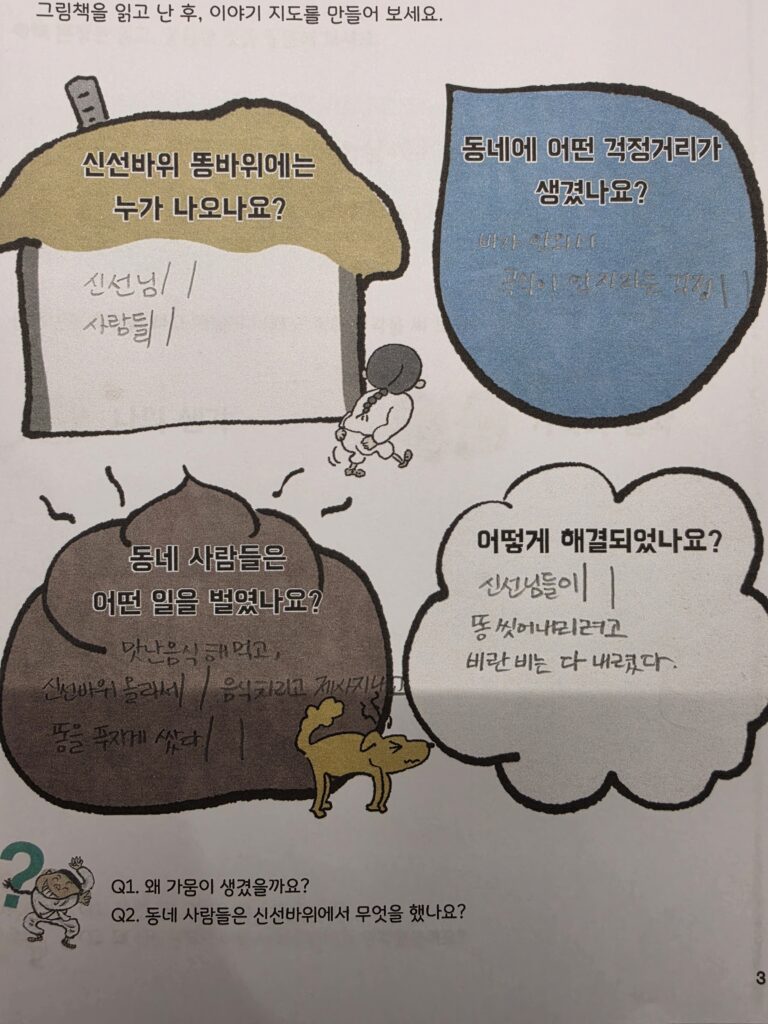 그림책을 읽고 난 후, 이야기 지도를 만들어 보세요.
신선바위 똥바위에는
누가 나오나요?
신선님//
사람들//
동네에 어떤 걱정거리가
생겼나요?
비가 안와서
곡식이 안자라는 걱정//
동네 사람들은
어떤 일을 벌였나요?
맛난음식 해먹고,
신선바위 올라서// 음식차리고 제사지내고
똥을 푸지게 쌌다//
어떻게 해결되었나요?
신선님들이//
똥 씻어내리려고
비란 비는 다 내렸다.
?
Q1. 왜 가뭄이 생겼을까요?
Q2. 동네 사람들은 신선바위에서 무엇을 했나요?
3